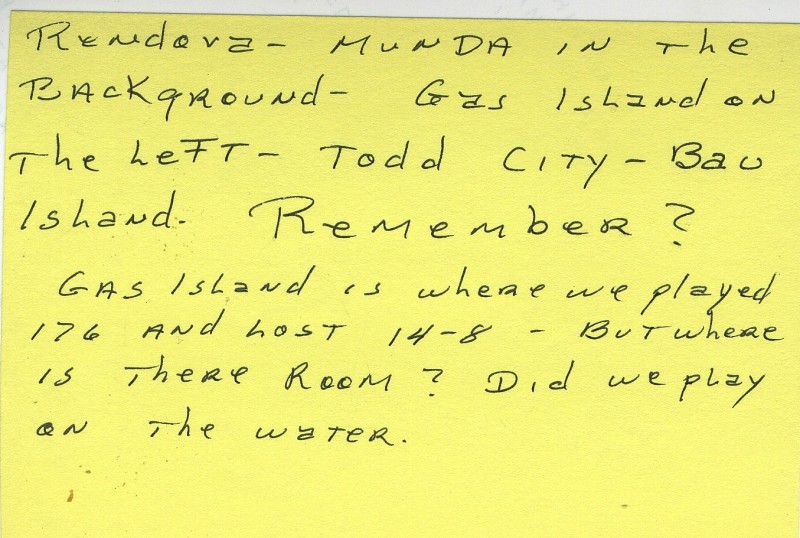 Rendova - MUNDA in the
BACKGROUND - Gas Island on
The LeFT - Todd CITY - Bau
Island. Remember?
GAS Island is where we played
176 AND LOST 14-8 - BUT where
is THERE ROOM? Did we play
on The WATER.